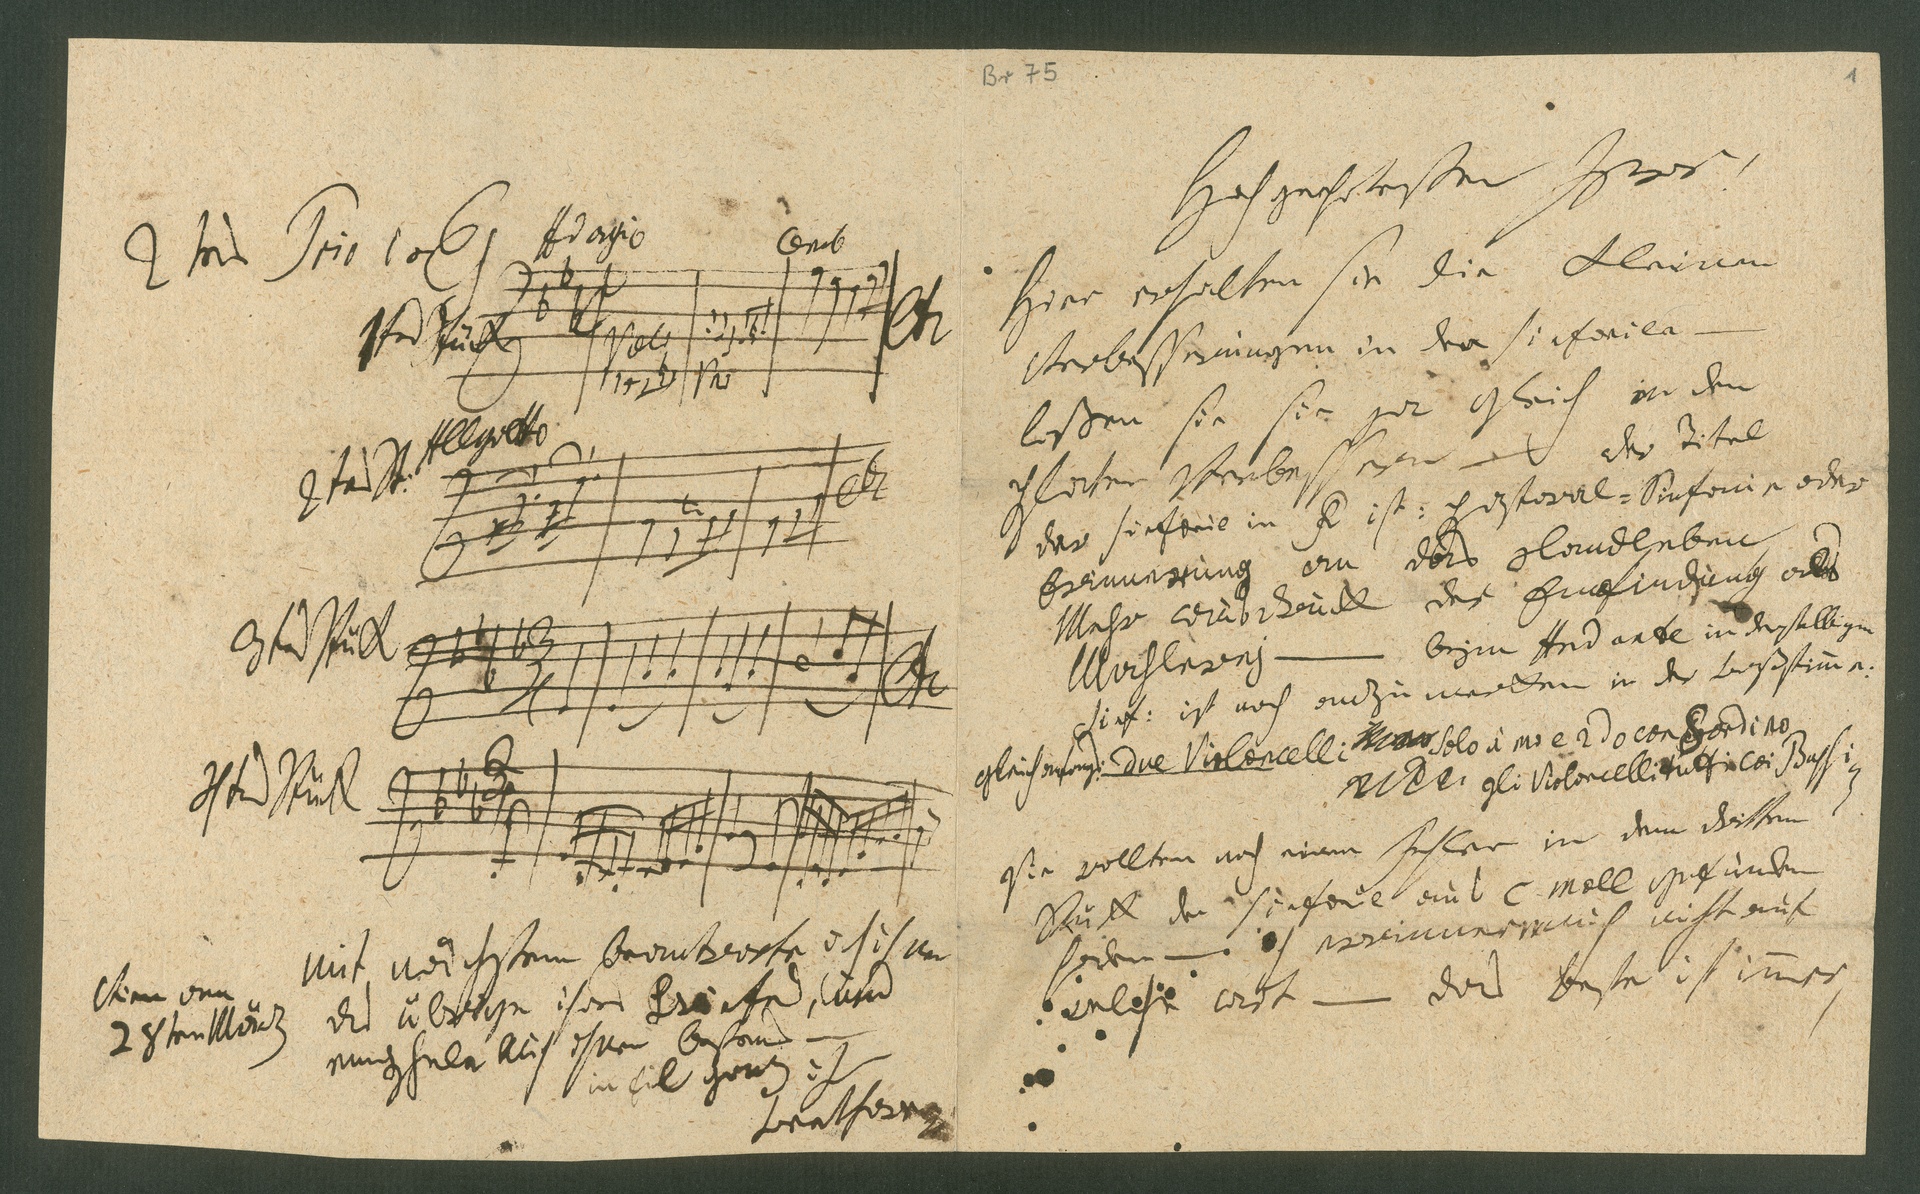 Br 75
1
Hochgeehrtester Herr!
Hier erhalten sie die kleinen
Verbesserungen in den sinfonien —
laßen sie sie ja gleich in den
platten Verbessern — der Titel
der sinfonie in F ist: pastoral=Sinfonie oder
Erinnerung an das Landleben
Mehr ausdruck der Empfindung als
Mahlerej — beym Andante in derselbigen
Sinf: ist noch anzumerken in der Baßstimme:
gleich anfangs: due Violoncelli Solo 1mo e 2do con Sordino
gli Violoncelli tutti coi Bassi
sie wollten noch einen Fehler in dem dritten
stück der sinfonie aus C moll gefunden
haben — ich erinnere mich nicht auf
welche art — das beste ist immer,
2tes Trio aus Adagio
1tes Stück
Etc
2tes St: Allegretto
Etc
3tes Stück
Etc
4tes Stück
mit nächstem beantworte ich ihnen
das übrige ihres Briefes, und
empfehle mich ihnen bestens —
in Eil ganz ihr
Beethoven
Vien am
28ten März